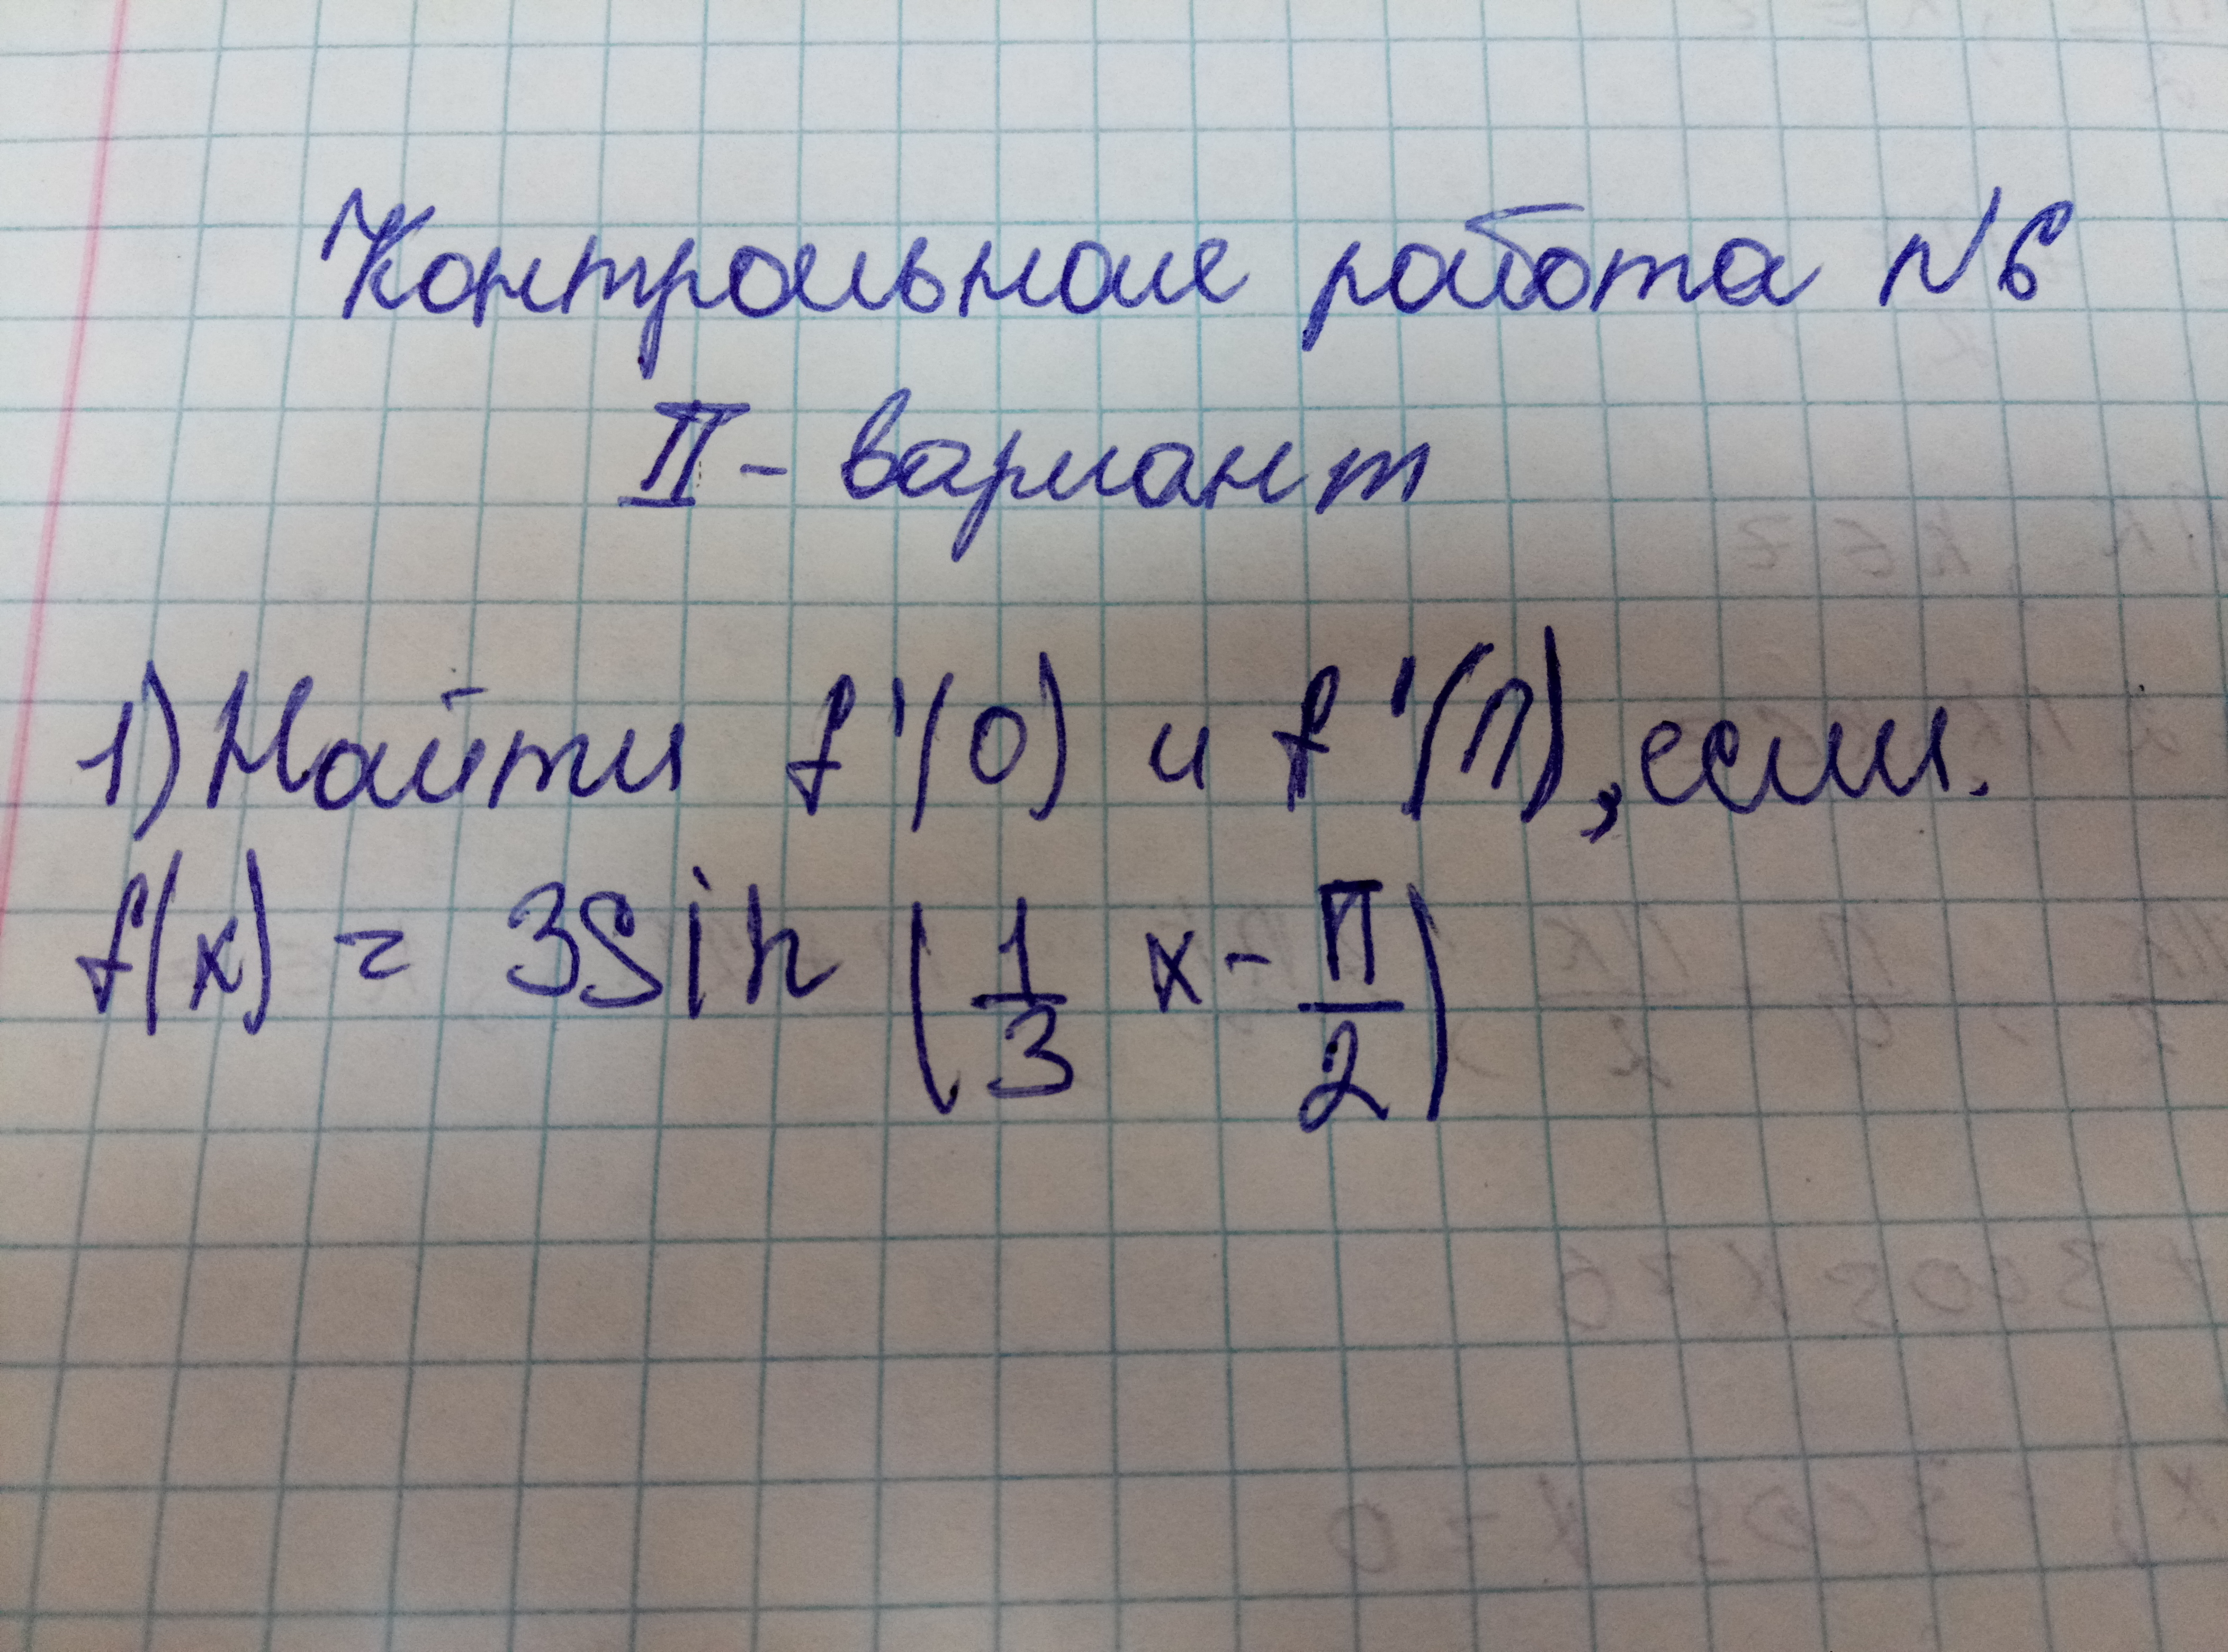 Контрольная работа №6
II - вариант
1) Найти f '(0) и f '(π), если.
f(x) = 3Sin (1/3 x - π/2)